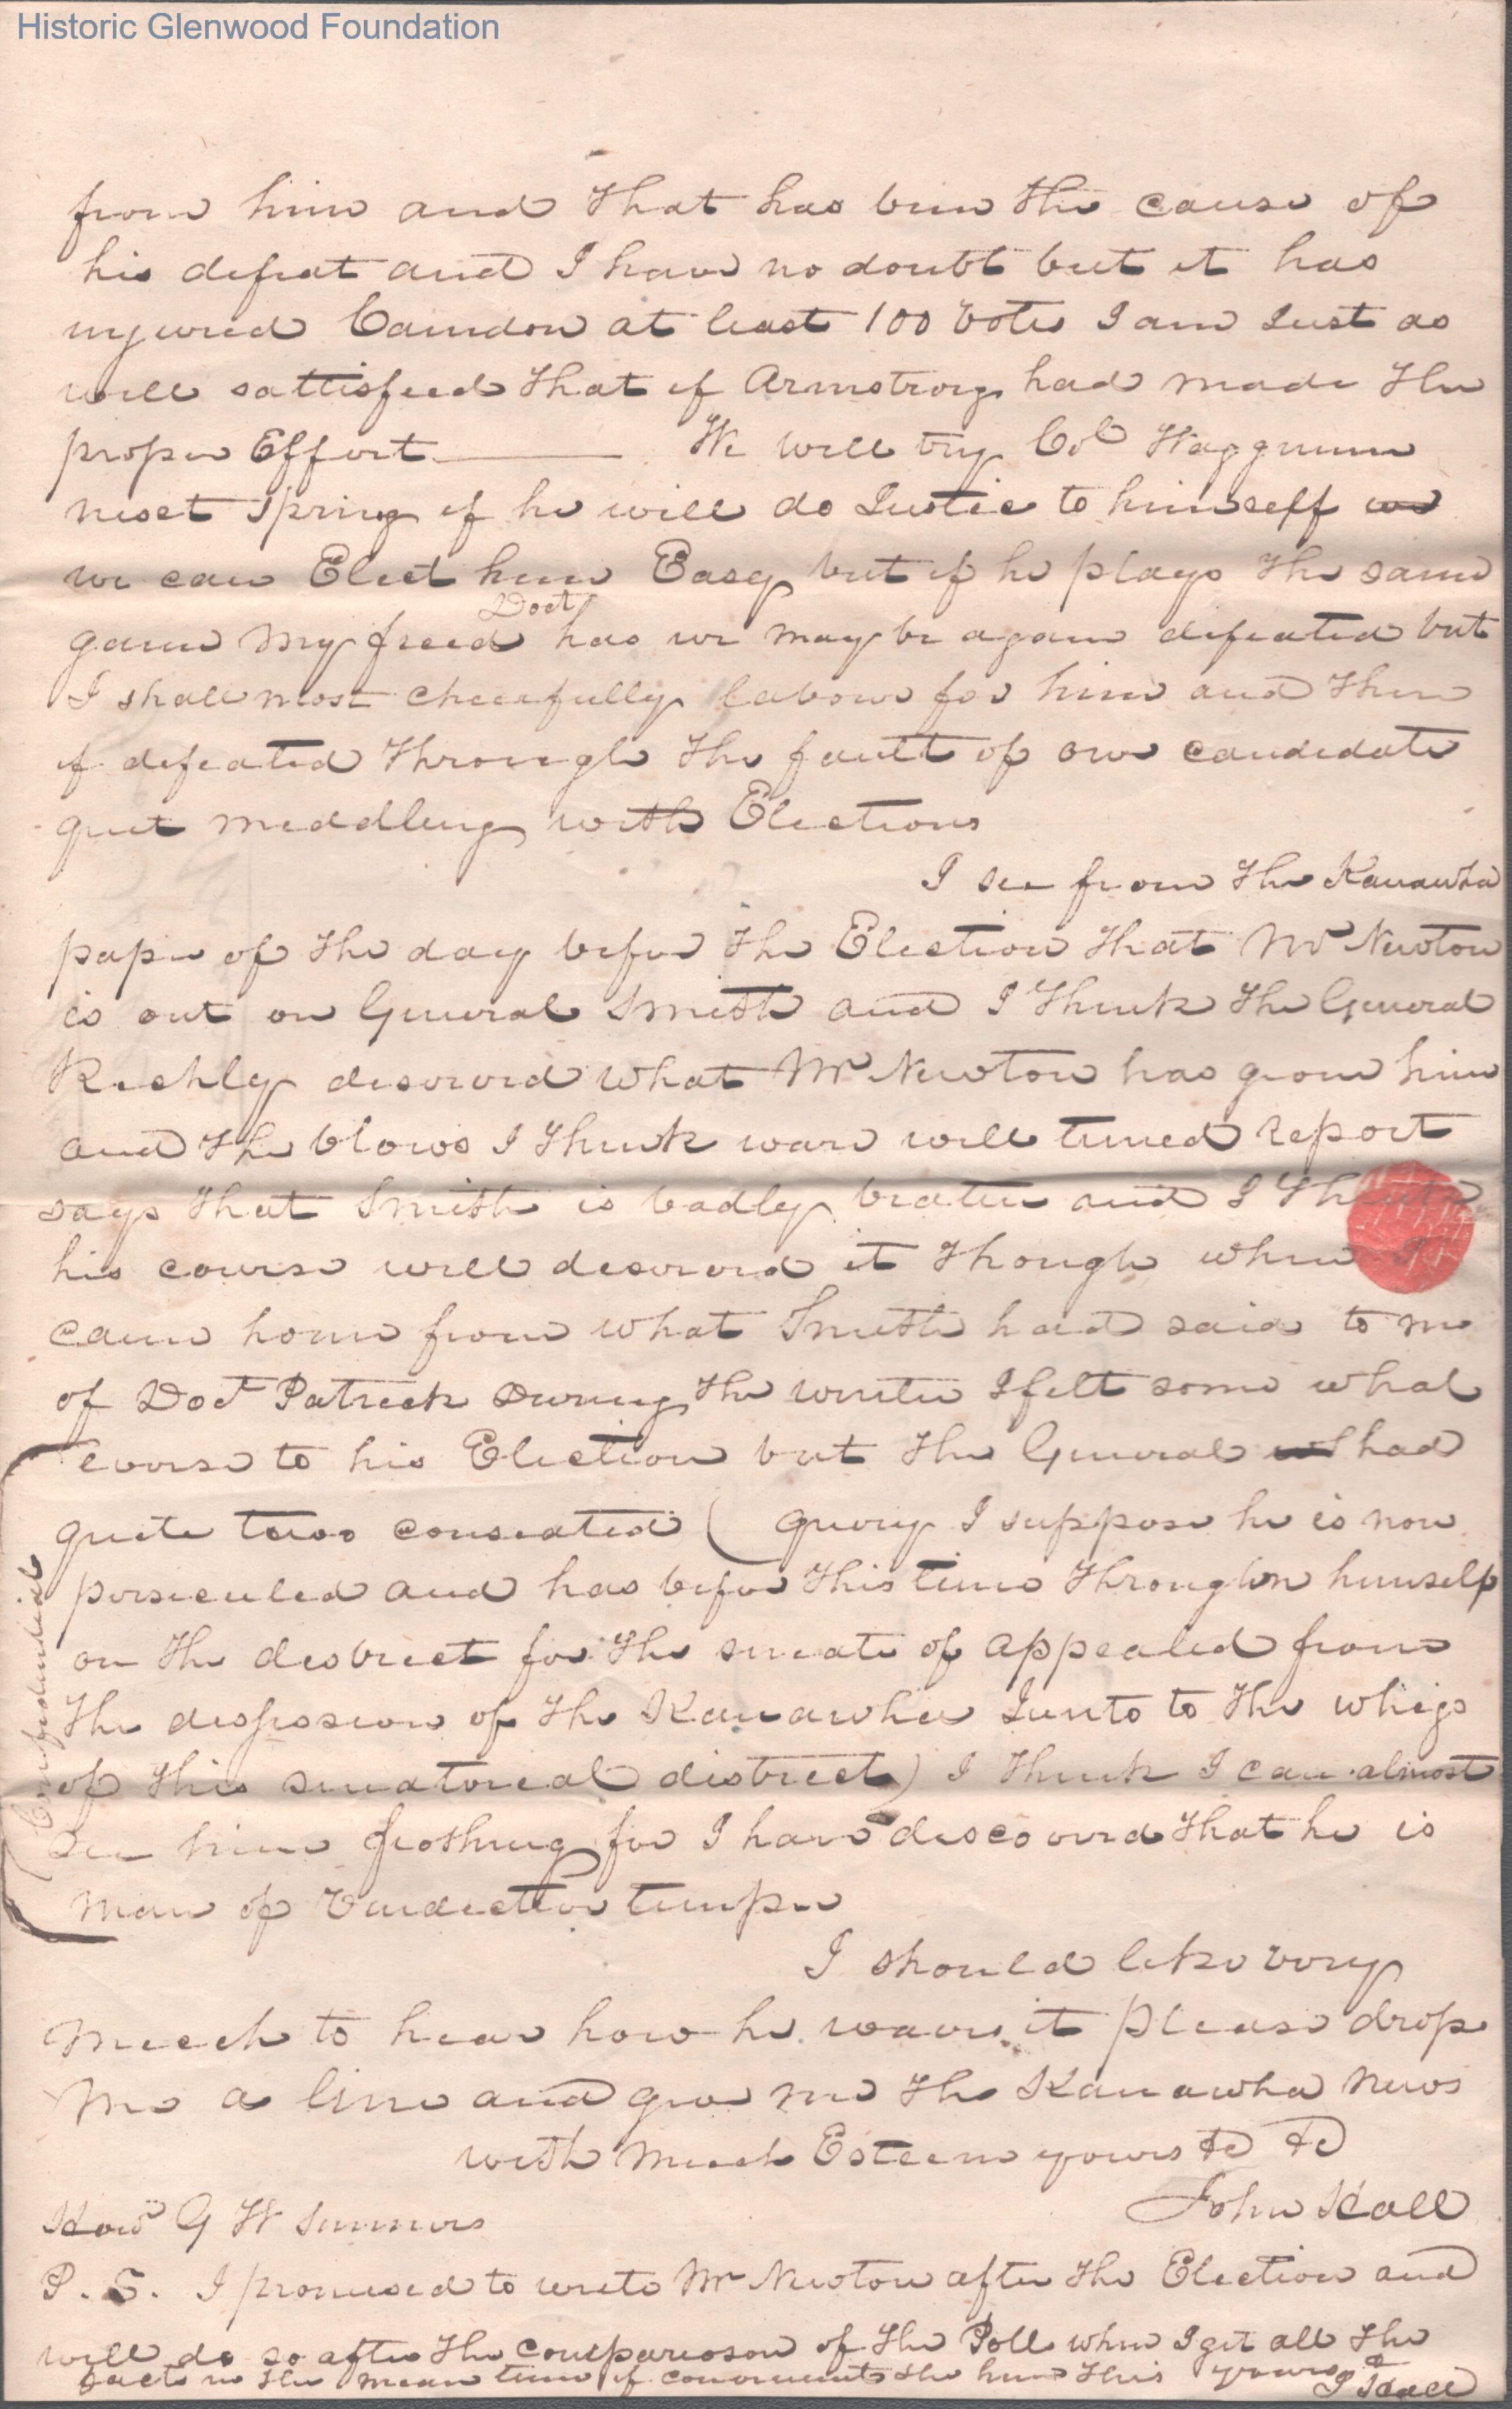 Historic Glenwood Foundation
from him and that has bin the cause of
his defeat and I have no doubt but it has
injured Camdon at least 100 votes I am Just as
well sattisfied that if Armstrong had made the
proper Effort ——— We will try Col Waggenner
next Spring if he will do Justic to himself we
we can Elect him Easy but if he plays the same
game my freed Doct has we may be again defeated but
I shall most cheerfully labour for him and then
if defeated through the fault of our candidate
quit meddling with Elections
I see from the Kanawha
paper of the day before the Election that Mr Newton
is out on General Smith and I think the General
Richly deserved what Mr Newton has given him
and the blows I think ware well timed Report
says that Smith is badly beaten and I think
his course well deserved it though when I
came home from what Smith had said to me
of Doct Patrick During the winter I felt some what
averse to his Election but the General had
quite conseated ( query I suppose he is now
persecuted and has before this time himself
on the destrict for the senate of appealed from
the of the Kanawha Junto to the whigs
of this senatoreal district) I think I can almost
See him frothing for I have discoverd that he is
man of temper
Confidential
I should like very
much to hear how he it please drop
me a line and give me the Kanawha news
with much Esteem yours &c &c
John Hall
Hon G W Summers
P. S. I promised to write Mr Newton after the Election and
will do so after the comparison of the Poll when I get all the
facts in the mean time if him this yours &
J Hall